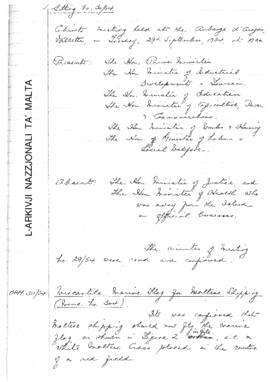 Sitting No. 30/64
Cabinet meeting held at the Auberge d'Aragon,
Valletta on Tuesday, 29th September, 1964 at
Present: The Hon. Prime Minister
The Hon. Minister of Industrial
Development & Tourism.
The Hon. Minister of Education
The Hon. Minister of Agriculture, Power
& Communications.
The Hon. Minister of Works & Housing
The Hon. Minister of Labour &
Social Welfare.
L-ARKIVJI NAZZJONALI TA' MALTA
Absent: The Hon. Minister of Justice, and
The Hon. Minister of Health who
was away from the Island
on official business.
The minutes of Meeting
No 29/64 were read and confirmed.
Mercantile Marine Flag for Maltese Shipping
It was confirmed that
Maltese shipping should now fly the marine
flag as shown in figure 2 i.e. a
white Maltese Cross placed in the centre
of a red field.